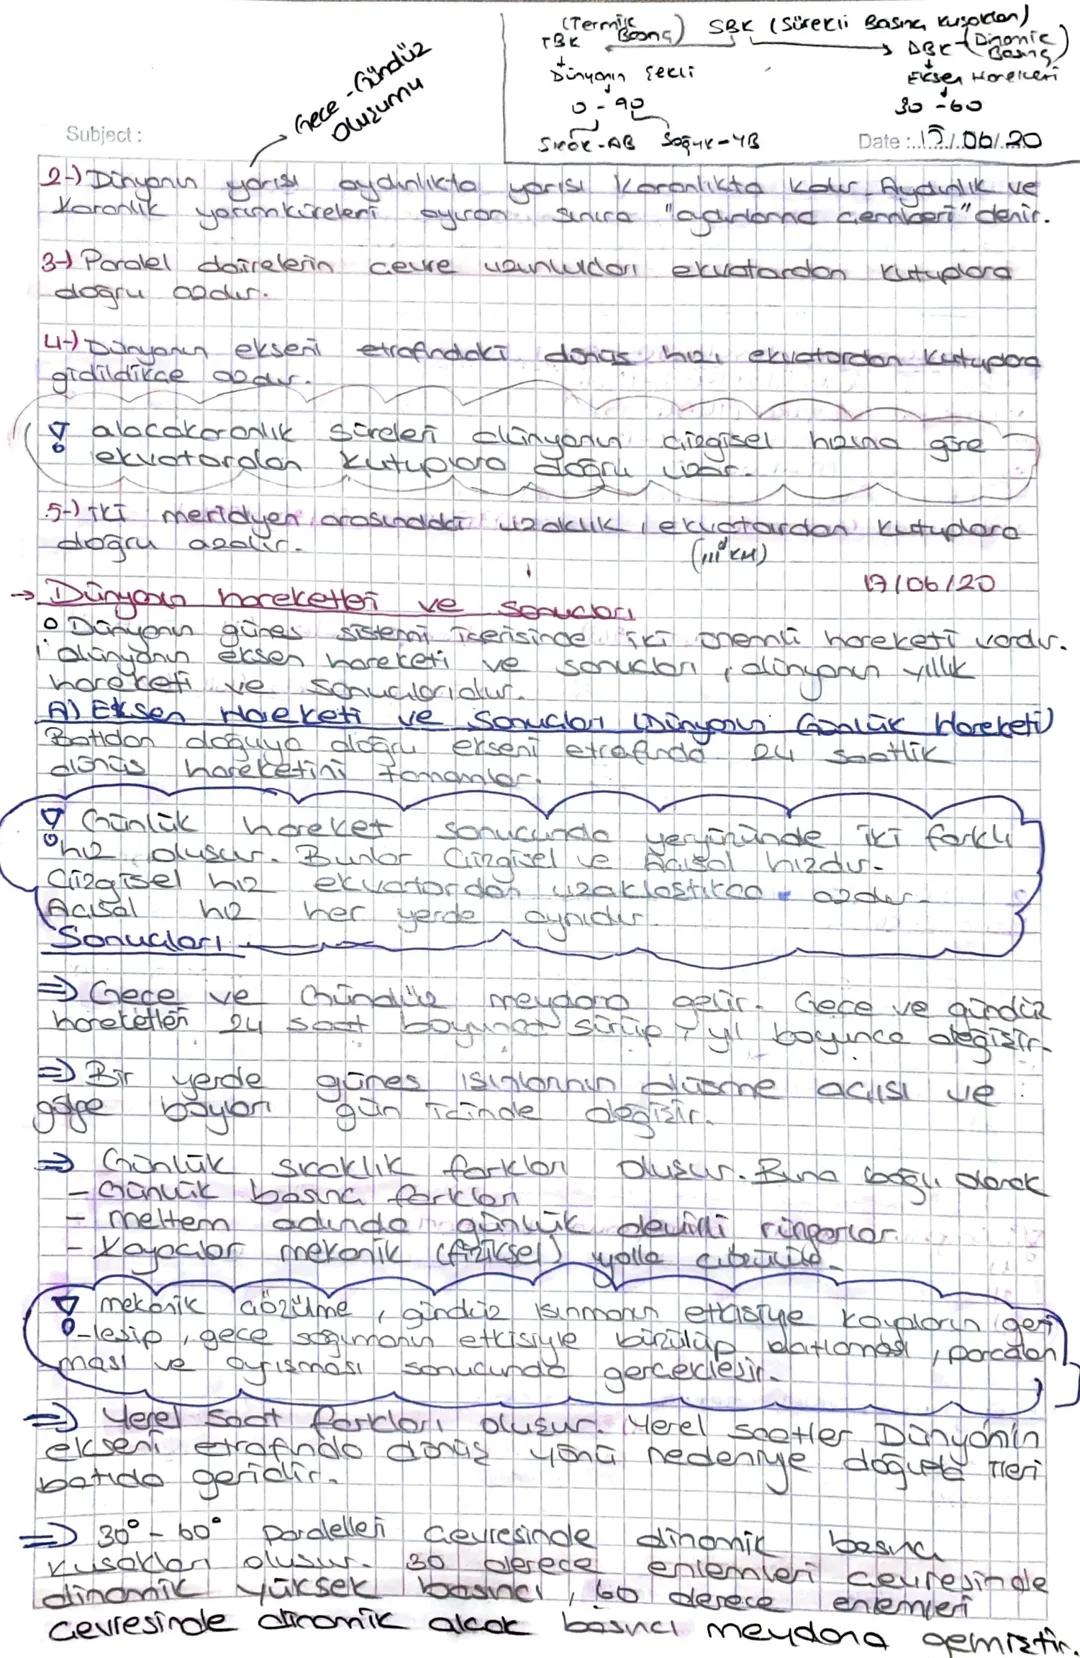 (Termik Basınç) SBK (Sürekli Basınç Kuşakları)
TBK DBK (Dinamik Basınç)
Dünyanın Şekli Eksen Hareketi
0 - 90 30 - 60
Sıcak-AB Soğuk-YB
Gece - Gündüz Oluşumu
Subject : Date : 17/06/20
2-) Dünyanın yarısı aydınlıkta yarısı karanlıkta kalır. Aydınlık ve
karanlık yarımküreleri ayıran sınıra "aydınlanma çemberi" denir.
3-) Paralel dairelerin çevre uzunlukları ekvatordan kutuplara
doğru azalır.
4-) Dünyanın ekseni etrafındaki dönüş hızı ekvatordan kutuplara
gidildikçe azalır.
! alacakaranlık süreleri dünyanın çizgisel hızına göre
ekvatordan kutuplara doğru uzar.
5-) iki meridyen arasındaki uzaklık, ekvatordan kutuplara
doğru azalır. (111 KM)
17/06/20
→ Dünyanın hareketleri ve sonuçları
o Dünyanın güneş sistemi içerisinde iki önemli hareketi vardır.
dünyanın eksen hareketi ve sonuçları, dünyanın yıllık
hareketi ve sonuçlarıdır.
A) Eksen Hareketi ve Sonuçları (Dünyanın Günlük Hareketi)
Batıdan doğuya doğru ekseni etrafında 24 saatlik
dönüş hareketini tamamlar.
! Günlük hareket sonucunda yeryüzünde iki farklı
hız oluşur. Bunlar Çizgisel ve Açısal hızdır.
Çizgisel hız ekvatordan uzaklaştıkça azalır.
Açısal hız her yerde aynıdır.
Sonuçları
⇒ Gece ve Gündüz meydana gelir. Gece ve gündüz
hareketleri 24 saat boyunca sürüp, yıl boyunca değişir.
⇒ Bir yerde güneş ışınlarının düşme açısı ve
gölge boyları gün içinde değişir.
⇒ Günlük sıcaklık farkları oluşur. Buna bağlı olarak
- Günlük basınç farkları
- meltem adında günlük devirli rüzgarlar
- Kayaçlar mekanik (fiziksel) yolla çözülür.
! mekanik çözülme, gündüz ısınmanın etkisiye kayaların gen
-leşip, gece soğumanın etkisiyle büzülüp çatlaması, parçalan
ması ve ayrışması sonucunda gerçekleşir.
⇒ Yerel saat farkları oluşur. Yerel saatler Dünyanın
ekseni etrafında dönüş yönü nedeniyle doğuda ileri
batıda geridir.
⇒ 30° - 60° paralelleri çevresinde dinamik basınç
kuşakları oluşur. 30 derece enlemleri çevresinde
dinamik yüksek basıncı, 60 derece enlemleri
çevresinde dinamik alçak basıncı meydana gemiştir.